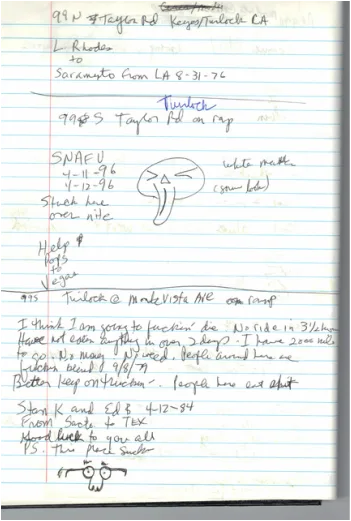 99 N Taylor Rd Keyes/Turlock CA
L Rhodes
to
Saramento from LA 8-31-76
Turlock
99 S Taylor Rd on rap
SNAFU
4-11-96
4-12-96
Stuck here
over nite
white matter
Help
Pops
to
Vegas
99S Turlock @ Monte Vista Ave on ramp
I think I am going to fuckin' die. No ride in 3½
Have not eaten anything in over 2 days. I have 2000
to go. No money. No weed. People around here are
fuckin weird! 9/8/79
Better keep on truckin-. People here eat shit
Stan K and Ed B 4-12-84
From Sacto to TEX
Good luck to you all
PS. this place sucks